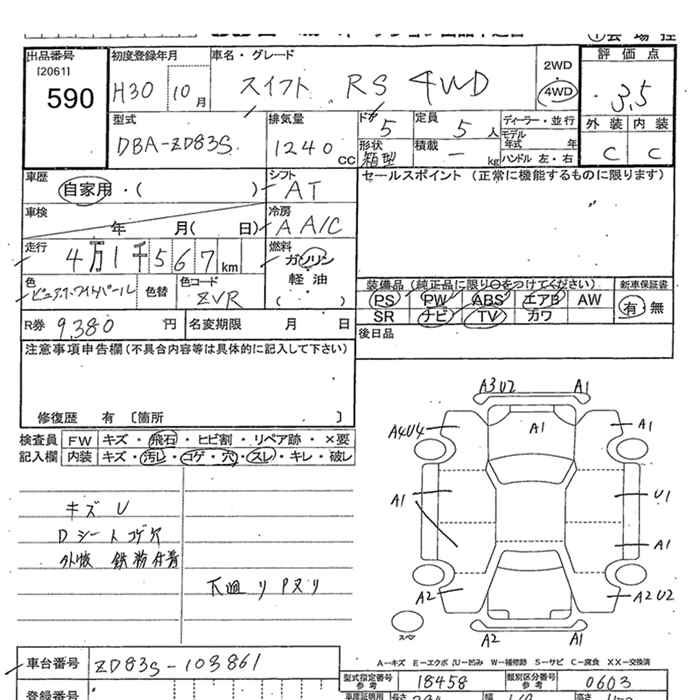 出品番号 初度登録年月 車名・グレード 評価点
[2061] 590 H30 10月 スイフト RS 4WD 2WD 4WD 3.5
型式 排気量 ドア 定員 ディーラー・並行 外装 内装
DBA-ZD83S 1240 CC 5 5人 モデル年式 年 C C
形状 箱型 積載 ー kg ハンドル 左・右
車歴 シフト セールスポイント (正常に機能するものに限ります)
自家用・( ) AT
車検 冷房
年 月( 日) A A/C
走行 燃料
4万1千567km ガソリン
軽油
( )
色 色替 色コード 装備品 (純正品に限り○をつけてください) 新車保証書
ピュアホワイトパール ZVR PS PW ABS エアB AW 有・無
SR ナビ TV カワ
R券 9,380 円 名変期限 月 日 後日品
注意事項申告欄(不具合内容等は具体的に記入して下さい)
修復歴 有 [箇所 ]
検査員 FW キズ・飛石・ヒビ割・リペア跡・×要
記入欄 内装 キズ・汚レ・コゲ・穴・スレ・キレ・破レ
キズ U
Dシートコゲ穴
下廻リPヌリ
A3U2 A1
A4U4 A1 A1
A1 U1
A1
A2 A2U2
A2 A1
スペア
A-キズ E-エクボ U-凹み W-補修跡 S-サビ C-腐食 XX-交換済
車台番号 ZD83S-103861
型式指定番号 参考 18458 類別区分番号 参考 0603
登録番号